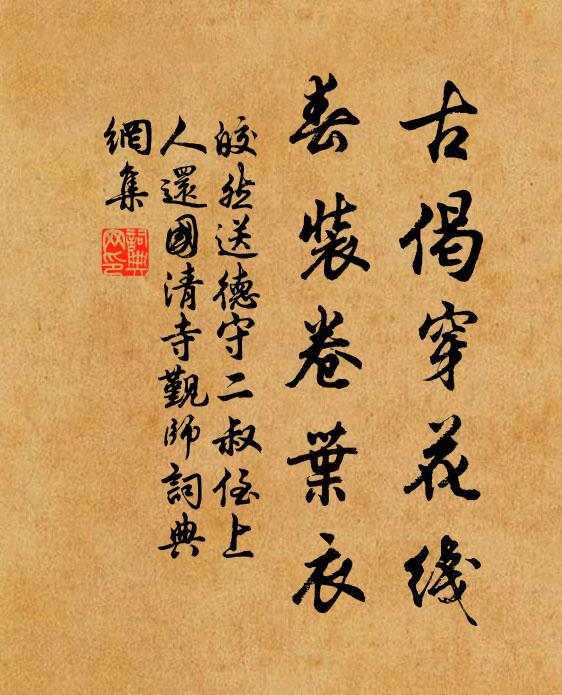 古偈穿花线
春装卷葉衣
皎然送德守二叔侄上
人還國清寺觐師詞典
網集
詞典
网印